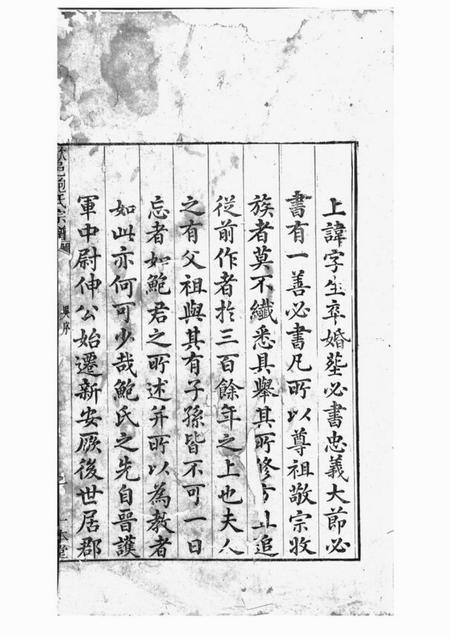 上諱字生卒婚塟必書忠義大節必
書有一善必書凡所以尊祖敬宗收
族者莫不纖悉具舉其所修方且追
從前作者扵三百餘年之上也夫人
之有父祖與其有子孫皆不可一日
忘者如鮑君之所述并所以為教者
如此亦何可少哉鮑氏之先自晉護
軍中尉伸公始遷新安厥後世居郡
邑鮑氏宗譜
吴序
一本堂